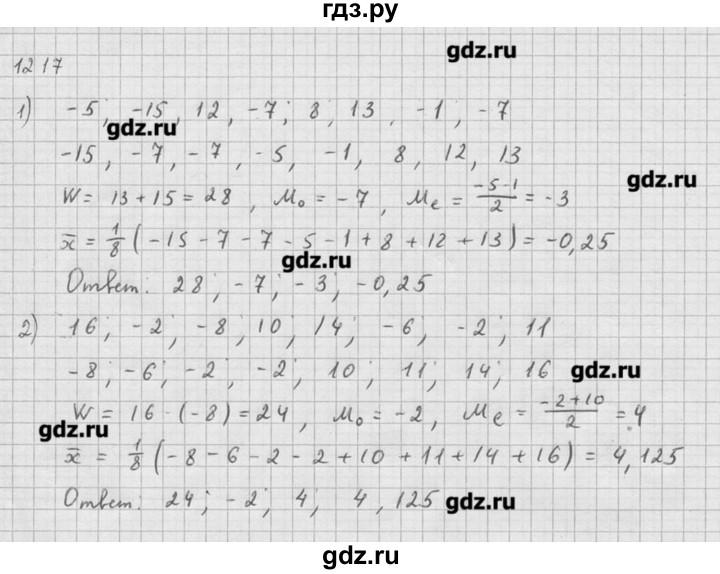 гдз.ру
gdz.ru
1217
1) -5; -15, 12, -7; 8, 13, -1, -7
gdz.ru
-15, -7, -7, -5, -1, 8, 12, 13
gdz.ru
W = 13 + 15 = 28, Mo = -7, Me = \frac{-5-1}{2} = -3
x̄ = \frac{1}{8} (-15 - 7 - 7 - 5 - 1 + 8 + 12 + 13) = -0,25
gdz.ru
Ответ: 28; -7; -3; -0,25
2) 16; -2; -8; 10; 14; -6; -2; 11
-8; -6; -2; -2; 10; 11; 14; 16
gdz.ru
W = 16 - (-8) = 24, Mo = -2, Me = \frac{-2+10}{2} = 4
gdz.ru
x̄ = \frac{1}{8} (-8 - 6 - 2 - 2 + 10 + 11 + 14 + 16) = 4,125
Ответ: 24; -2; 4; 4,125
gdz.ru
gdz.ru